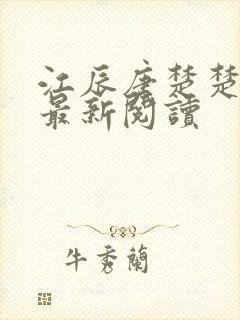 江辰唐楚楚
最新閱讀
牛秀蘭